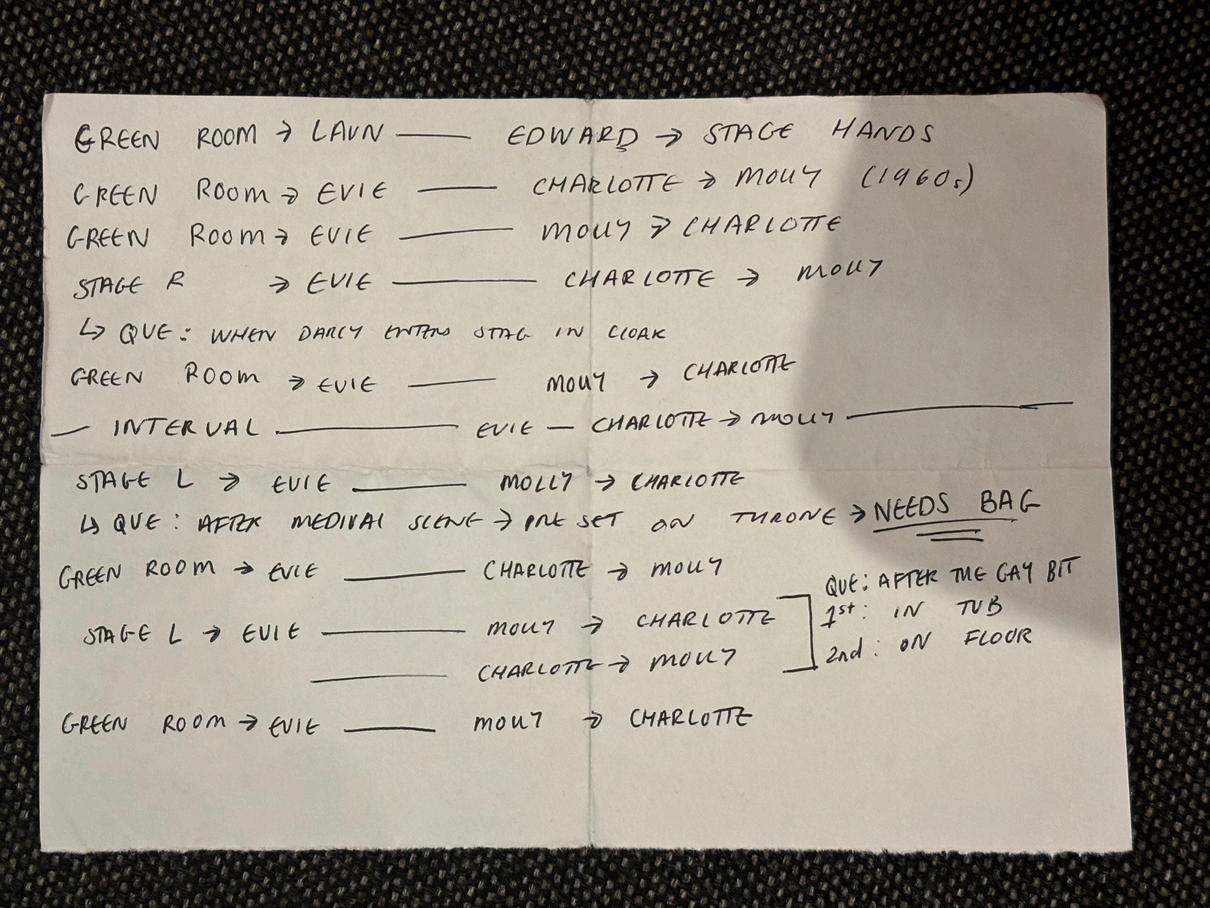 GREEN ROOM → LAUN —— EDWARD → STAGE HANDS
GREEN ROOM → EVIE —— CHARLOTTE → MOLLY (1960s)
GREEN ROOM → EVIE —— MOLLY → CHARLOTTE
STAGE R → EVIE —— CHARLOTTE → MOLLY
↳ QUE: WHEN DARCY ENTERS STAG IN CLOAK
GREEN ROOM → EVIE —— MOLLY → CHARLOTTE
— INTERVAL —— EVIE — CHARLOTTE → MOLLY ——
STAGE L → EVIE —— MOLLY → CHARLOTTE
↳ QUE: AFTER MEDIVAL SCENE → PRE SET ON THRONE → NEEDS BAG
GREEN ROOM → EVIE —— CHARLOTTE → MOLLY
QUE: AFTER THE GAY BIT
STAGE L → EVIE —— MOLLY → CHARLOTTE
1st: IN TUB
—— CHARLOTTE → MOLLY
2nd: ON FLOOR
GREEN ROOM → EVIE —— MOLLY → CHARLOTTE